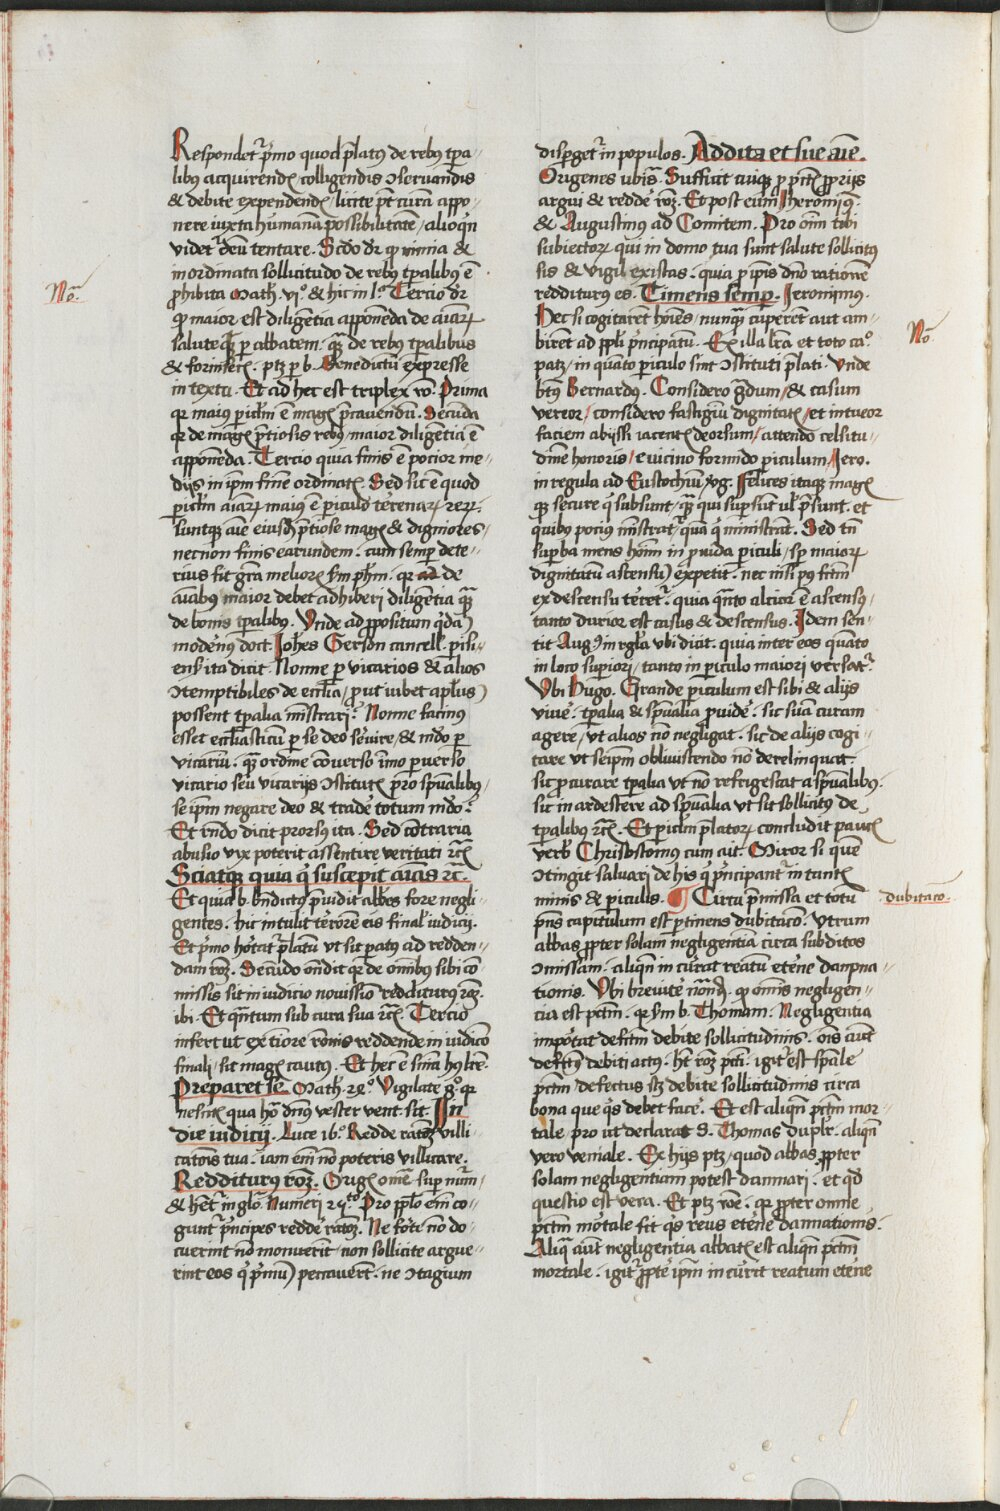 Respondet᷑ p͛mo quod p̄latꝰ de rebꝰ tp̄a⸗
libꝰ acquirendꝭ colligendis ↄseruandis
& debite expendendꝭ / licite pt̄ curā appo⸗
nere iuxta humanā possibilitatē / alioqͥn
videt᷑ deū tentare . Scd̄o dr̄ ꝙ nimia &
inordinata sollicitudo de rebꝰ tp̄alibꝰ ē
ꝓhibita Math̄ . vjͦ . & hic in lͣ . Tercio dr̄
Nͦ .
ꝙ maior est diligētia apponēda de aīaꝝ
salute qꝫ ꝑ abbatem . qͣꝫ de rebꝰ tp̄alibus
& forinsecꝭ . ptꝫ ꝑ b . Benedictū expresse
in textu . Et ad hec est triplex rͦ . Prima
qꝛ maiꝰ pic̄lm ē magꝭ p̄cauendū . Secūda
qꝛ de magꝭ p̄tiosis rebꝰ / maior diligētia ē
apponēda . Tercio quia finis ē pocior me⸗
dijs in ip̄m finē ordinatꝭ . Sed sic ē quod
pic̄lm aīaꝝ maiꝰ ē piculo terrenaꝝ reꝝ .
suntqꝫ aīe eiusd̄ p̄tiose magꝭ & digniores⸗
necnon finis earundem . cum semꝑ dete⸗
rius sit gr̄a meliorꝭ scd̄m ph̄m . qꝛ de
aīabꝰ maior debet adhiberi diligētia qͣꝫ
de bonis tp̄alibꝰ . Vnde ad ꝓpositum qͥdā
modernꝰ doct . Joh̄es Gerson cancell . pisi⸗
ens̄ ita dicit . Nonne ꝑ vicarios & alios
ↄtemptibiles de eccl̄ia / prout iubet apl̄us
possent tp̄alia mīstrari . Nonne facinꝰ
esset eccl̄iasticū ꝑ se deo seruire / & mūdo ꝑ
vicariū . qͣꝫ ordine cōuerso ī̄mo ꝑuerso
vicario seu vicarijs ↄstitutꝭ pro spūalibꝰ /
seip̄m negare deo & tradē totum mūdo .
Et rn̄do dicit prorsꝰ ita . Sed cōtraria
abusio vix poterit assentire veritati ⁊cꝭ
Sciatqꝫ quia qͥ suscepit aīas ⁊c .
Et quia b . bn̄dictꝰ p̄uidit abb̄es fore negli⸗
gentes . hic intulit terrorē eis final̄ iudicij .
Et p͛mo hortat̄ p̄latū vt sit paratꝰ ad redden⸗
dam rōꝫ . Secundo on̄dit qꝛ de om̄ibus sibi cō
missis sit in iudicio nouissīo redditurꝰ rōꝫ .
ibi . Et qͣntum sub cura sua ⁊cꝭ . Tercio
infert vt ex tīore rōnis reddende in iudicio
finali / sit magꝭ cautꝰ . Et hec ē sn̄ia hꝰ lr̄e .
Preparet se . Math̄ . 24ͦ . Vigilate gͦ . qꝛ
nescitꝭ qua hora dn̄s vester vent̄ . sit . In
die iudicij . Luce 16ͦ . Redde ratōꝫ villi
catōis tue . iam em̄ nō poteris villicare .
Redditurꝰ rōꝫ . Origꝭ omel̄ . suꝑ num̄ ,
& het᷑ in glō . Numeri 25ᵗͦ . Pro pp̄lo em̄ co⸗
gunt᷑ p͛ncipes reddē ratōꝫ . Ne forte nō do⸗
cuerint nō monuerit̄ . non sollicite argue⸗
rint eos qͥ p͛mū peccauert̄ . ne ↄtagium
disꝑget᷑ in populos . Addita et sue aīe .
Origenes vbi sͣ . Sufficit cuiqꝫ ꝓ pctꝭ ꝓprijs
argui & reddē rōꝫ . Et post eum Jheronimꝰ .
& Augustinus ad Comitem . Pro om̄i tibi
subiectoꝝ qui in domo tua sunt salute sollicitꝰ
sis & vigil existas . quia ꝑ ip̄is dn̄o rationē
redditurus es . Timens semꝑ . Jeronimus .
Hec si cogitarent hoīes / nunqͣꝫ cuperent aut am⸗
birēt ad ppl̄i p͛ncipatū . Ex illa lr̄a et toto caͦ .
Nͦ .
patꝫ / in quāto piculo sint ↄstituti p̄lati . Vnde
bt̄us Bernardꝰ . Considero gͣdum / & casum
vereor / considero fastigiū dignitatꝭ / et intueor
faciem abijssi iacentꝭ deorsum / attendo celsitu⸗
dinē honoris / e vicino formido periculum / Jero .
in regula ad Eustochiū xͦg . Felices itaqꝫ magꝭ
qꝫ secure qͥ subsunt / qͣꝫ qui supersūt vl̄ p̄sunt . et
quibꝰ pociꝰ mīstrat᷑ / quā qͥ ministrāt . Sed tn̄
suꝑba mens hoīm inprouida piculi / sꝑ maioꝝ
dignitatū ascensū expetit . nec nisi ꝑꝰ sētm̄
ex descensu terret᷑ . quia qͣnto alcior ē ascensꝰ /
tanto durior est casus & descensus . Idem sen⸗
tit Augꝰ in regl̄a vbi dicit . quia inter eos quāto
in loco supiori / tanto in piculo maiori versat᷑ .
Vbi Hugo . Grande piculum est sibi & alijs
viuē . tp̄alia & spūalia prouidē . sic suā curam
agere / vt alios nō negligat . sic de alijs cogi⸗
tare vt seip̄m obliuiscendo nō derelinquat .
sic ꝓcurare tp̄alia vt nō refrigescat a spūalibꝰ .
sic inardescere ad spūalia vt sit sollicitꝰ de
tp̄alibus ⁊cꝭ . Et pic̄lm p̄latoꝝ concludit paucꝭ
verbꝭ Chrisostomꝰ cum ait . Miror si quē
ↄtingit saluari de his qͥ p͛ncipant᷑ in tantꝭ
minis & piculis . ¶ Circa p̄missa et totum
dubitac̄o .
pn̄s capitulum est ꝑtinens dubitac̄o . Vtrum
abbas ꝓpter solam negligentiā circa subditos
ↄmissam . aliqn̄ incurrat reatū eterne danpna⸗
tionis . Vbi breuitē rn̄dr̄ . ꝙ om̄is negligen⸗
cia est pctm̄ . qꝛ scd̄m b . Thomam . Negligentia
importat defctm̄ debite sollicitudinis . oīs aūt
defectꝰ debiti actꝰ . hꝫ rōꝫ pcti . igit᷑ est sp̄ale
pctm̄ / defectus scꝫ debite sollicitudinis circa
bona que qͥs debet facē . Et est aliqn̄ pctm̄ mor⸗
tale pro vt declarat S . Thomas duplr̄ . aliqn̄
vero veniale . Ex hijs ptꝫ / quod abbas ꝓpter
solam negligentiam potest damnari . et qd̄
questio est vera . Et ptꝫ rōne . qꝛ ꝓpter omne
pctm̄ mortale fit qͥs reus eterne damnationis .
Aliqͣ aūt negligentia abbatꝭ est aliqn̄ pctm̄
mortale . igit᷑ ꝓpter ip̄m incurrit reatum eterne